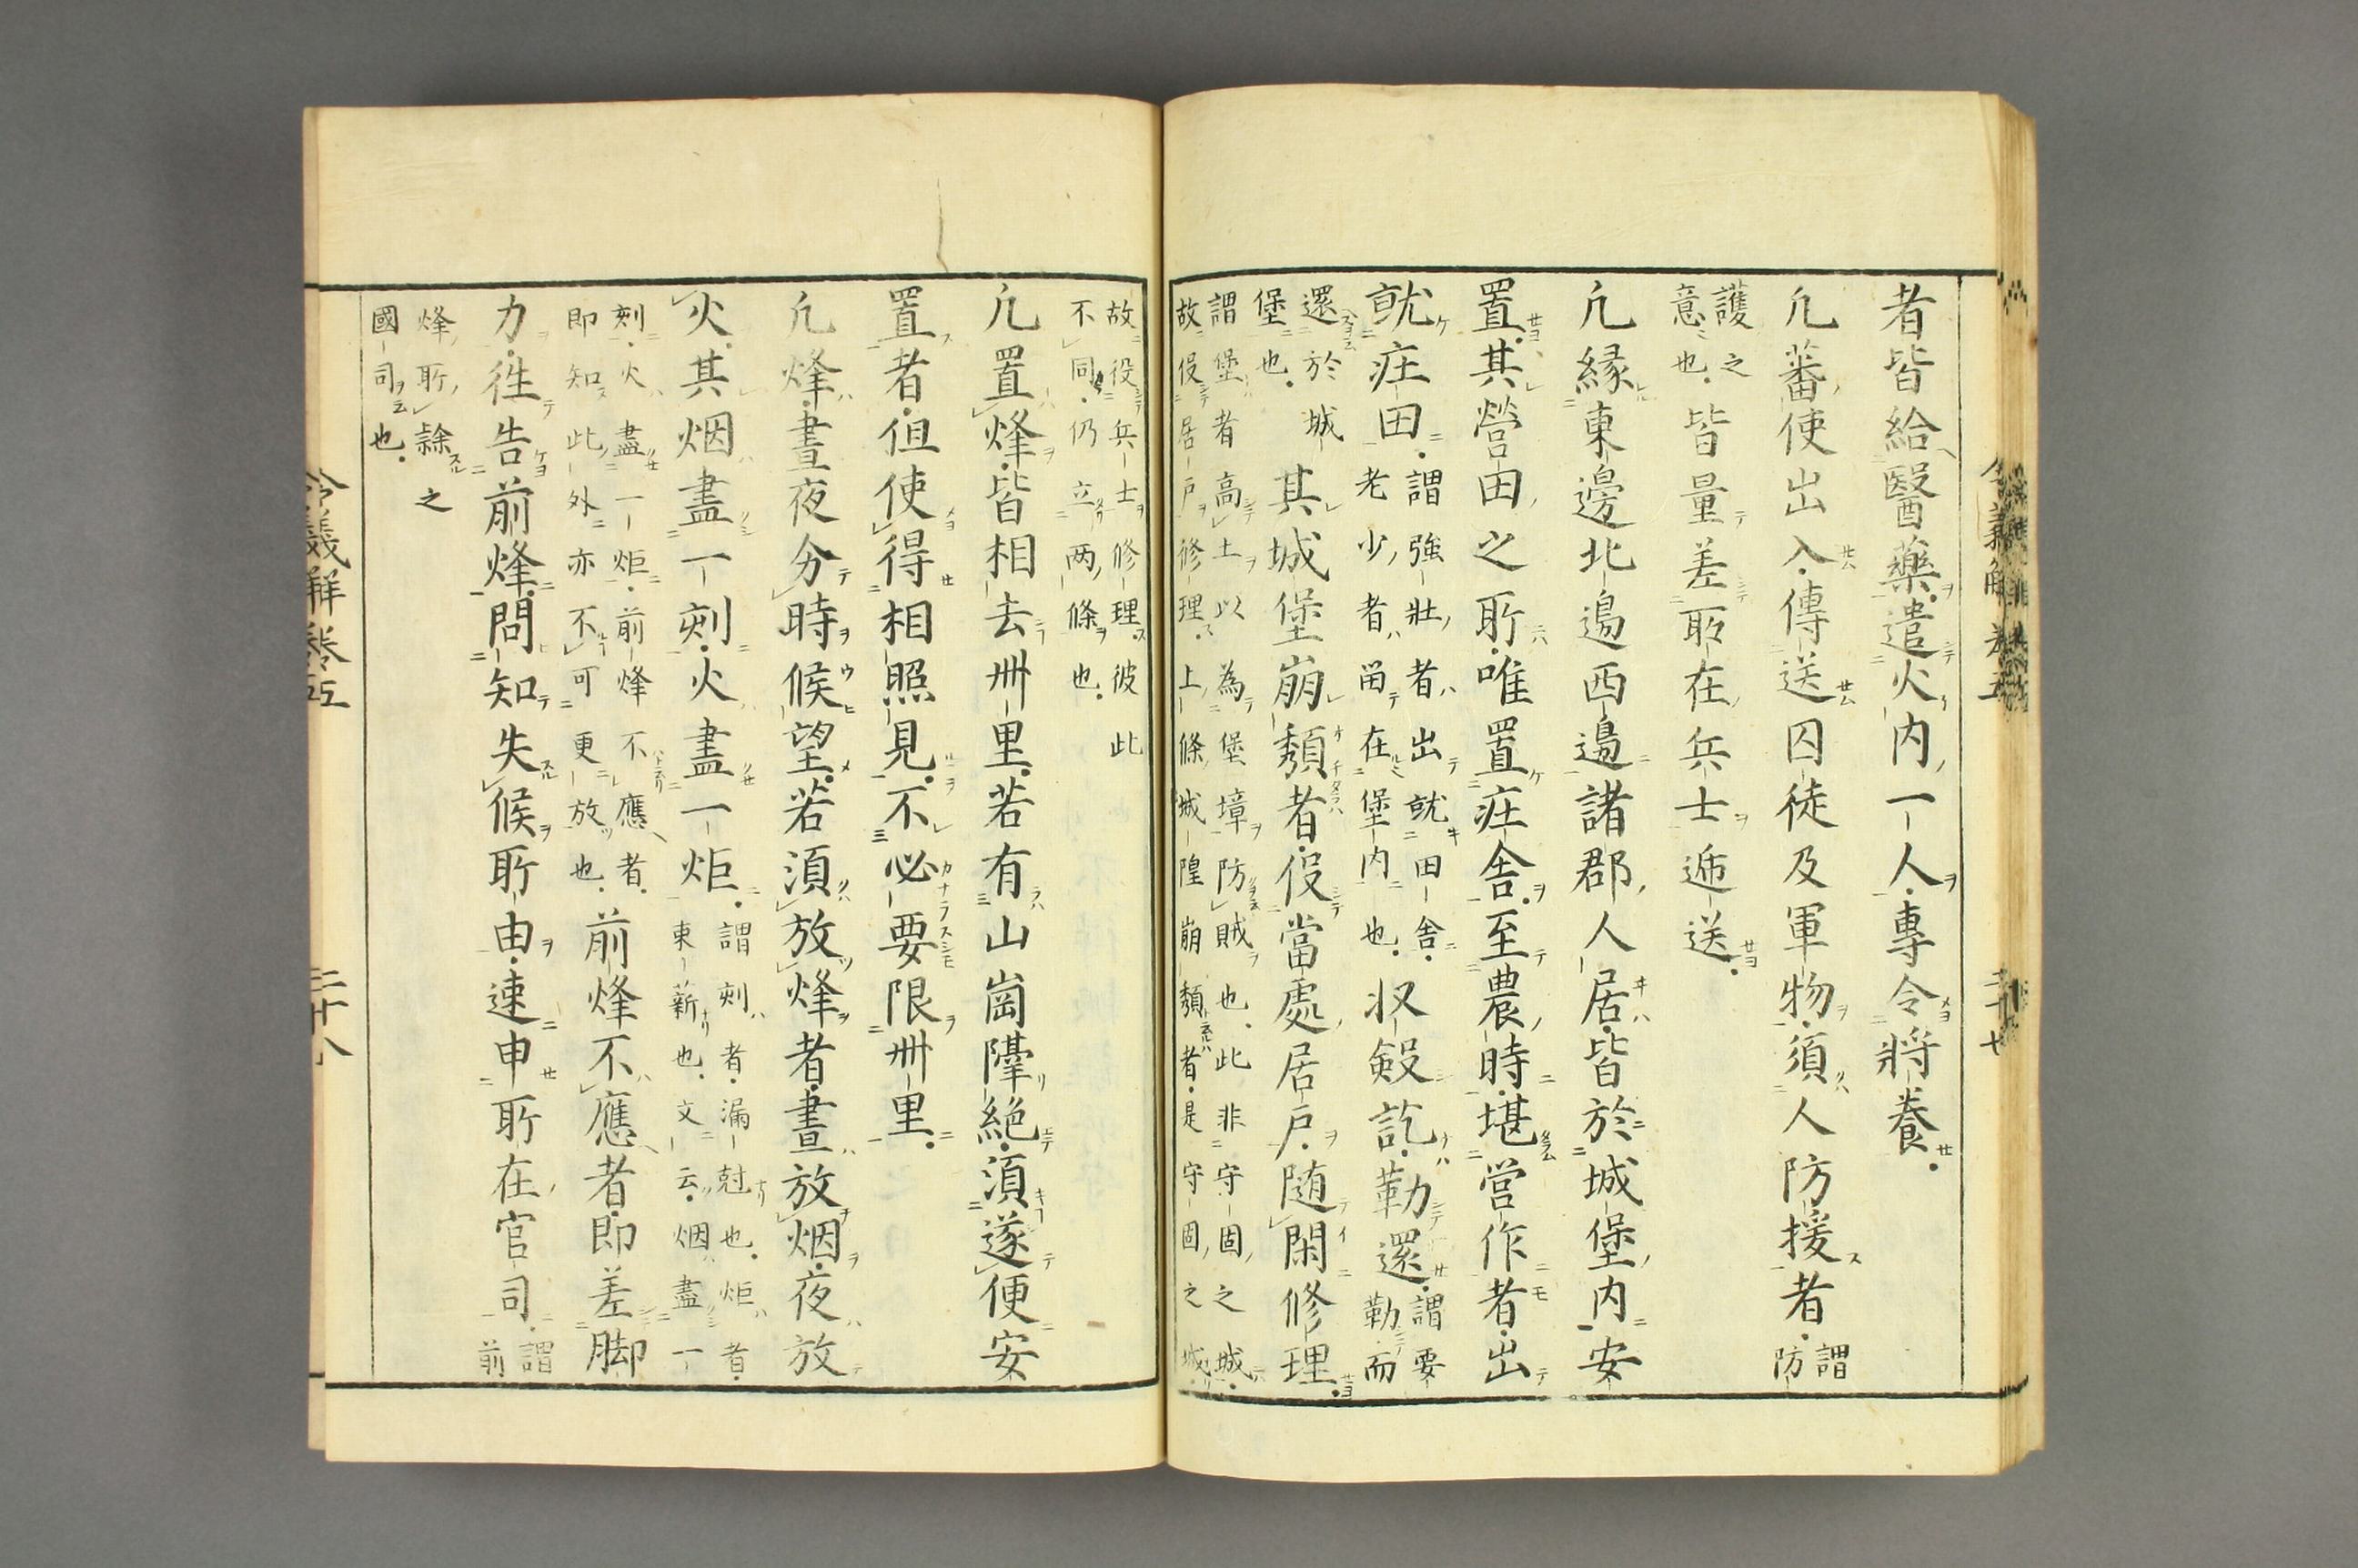 者皆給醫藥遣火内一人專令將養
凢蕃使出入傳送囚徒及軍物須人防援者謂防
護之意也皆量差所在兵士逓送
凢縁東邊北邉西邉諸郡人居皆於城堡内安
置其營田之所唯置庄舎至農時堪営作者出
就庄田謂強壯者出就田舎老少者畄在堡内也収斂訖勒還謂要勒而
還於城堡也其城堡崩頽者役當處居戸随閑修理
謂堡者高土以為堡墇防賊也此非守固之城
故役居戸修理上條城隍崩頽者是守固之城
故役兵士修理彼此
不同仍立两條也
凢置烽皆相去卌里若有山崗隔絶湏遂便安
置者但使得相照見不必要限卌里
凢烽晝夜分時候望若湏放烽者晝放烟夜放
火其烟盡一剋火盡一炬謂剋者漏剋也炬者束薪也文云烟盡一
剋火盡一炬前烽不應者即知此外亦不可更放也前烽不應者即差脚
力徃告前烽問知失候所由速申所在官司謂前
烽所隸之
國司也
令義解卷五
二十八